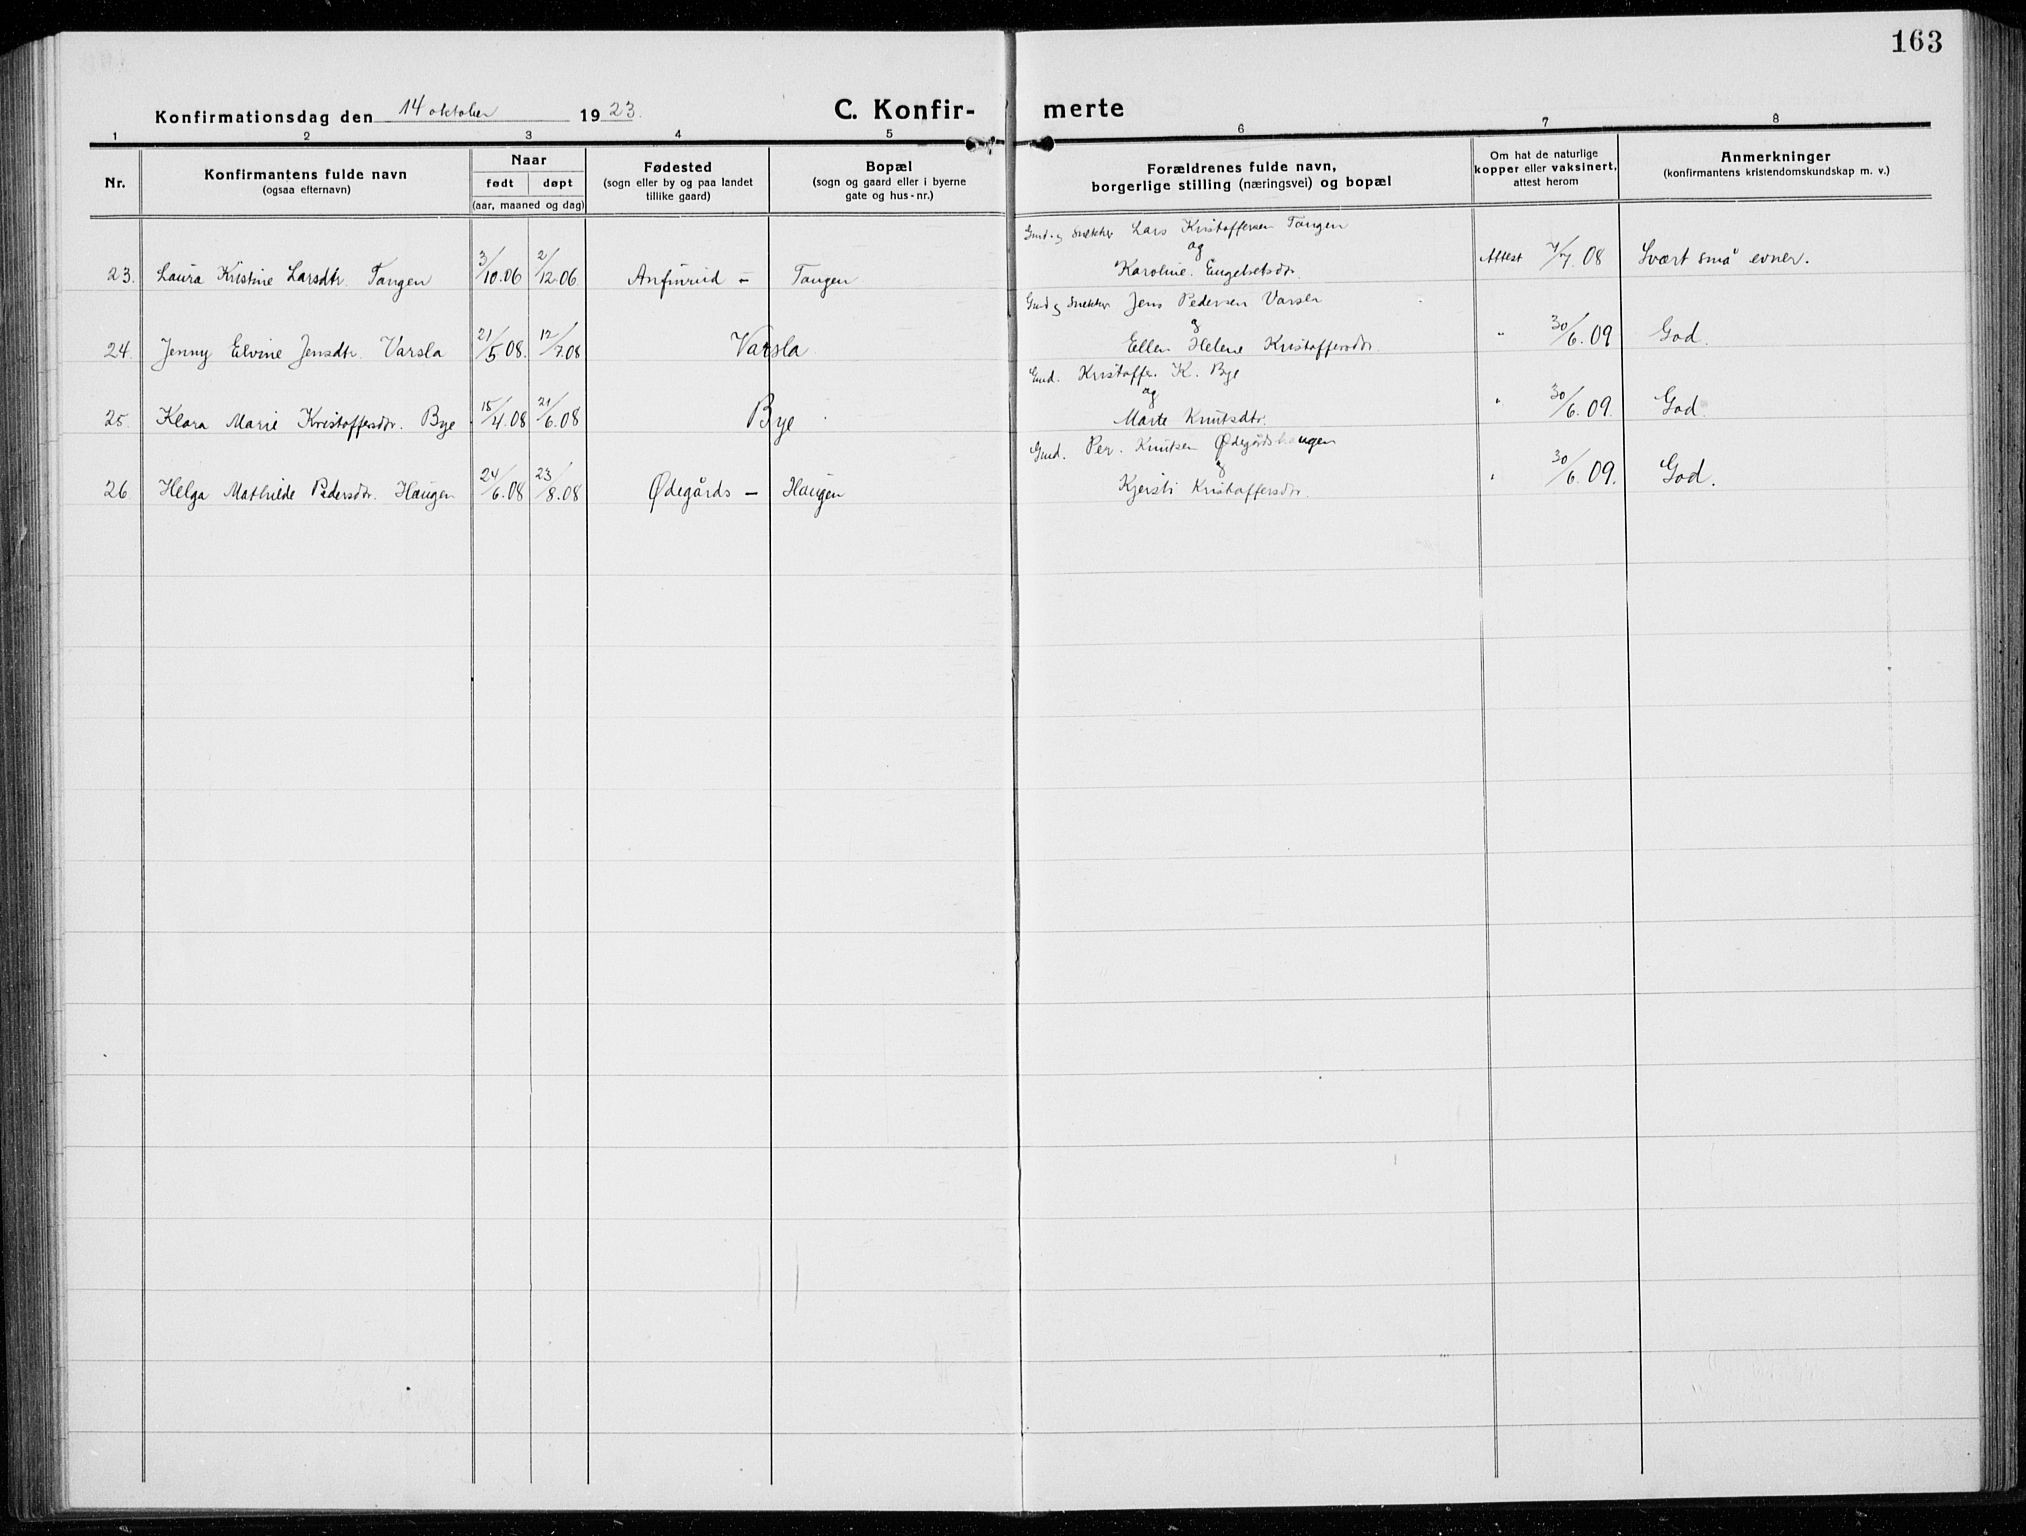 163
Konfirmationsdag den 14 oktober 1923.
C. Konfir- merte
1 2 3 4 5 6 7 8
Nr.
Konfirmantens fulde navn
(ogsaa efternavn)
Naar
født døpt
(aar, maaned og dag)
Fødested
(sogn eller by og paa landet
tillike gaard)
Bopæl
(sogn og gaard eller i byerne
gate og hus-nr.)
Forældrenes fulde navn,
borgerlige stilling (næringsvei) og bopæl
Om hat de naturlige
kopper eller vaksinert,
attest herom
Anmerkninger
(konfirmantens kristendomskundskap m. v.)
Gmd. og Snekker Lars Kristoffersen Tangen
og
23. Laura Kristine Larsdtr. Tangen 3/10.06 2/12.06 Anfinrud - Tangen Karoline Engebretsdtr. Attest 7/7.08 Svært små evner.
Gmd og Snekker Jens Pedersen Varsla
og
24. Jenny Elvine Jensdtr. Varsla 21/5.08. 12/7.08 Varsla Ellen Helene Kristoffersdtr. " 30/6.09 God.
Gmd. Kristoffer K. Bye
og
25. Klara Marie Kristoffersdtr. Bye 15/4.08 21/6.08 Bye Marte Knutsdtr. " 30/6.09. God.
Gmd. Per Knutsen Ødegårdshaugen
og
26. Helga Mathilde Pedersdtr. Haugen 24/6.08 23/8.08 Ødegårds - Haugen Kjersti Kristoffersdtr. " 30/6.09. God.